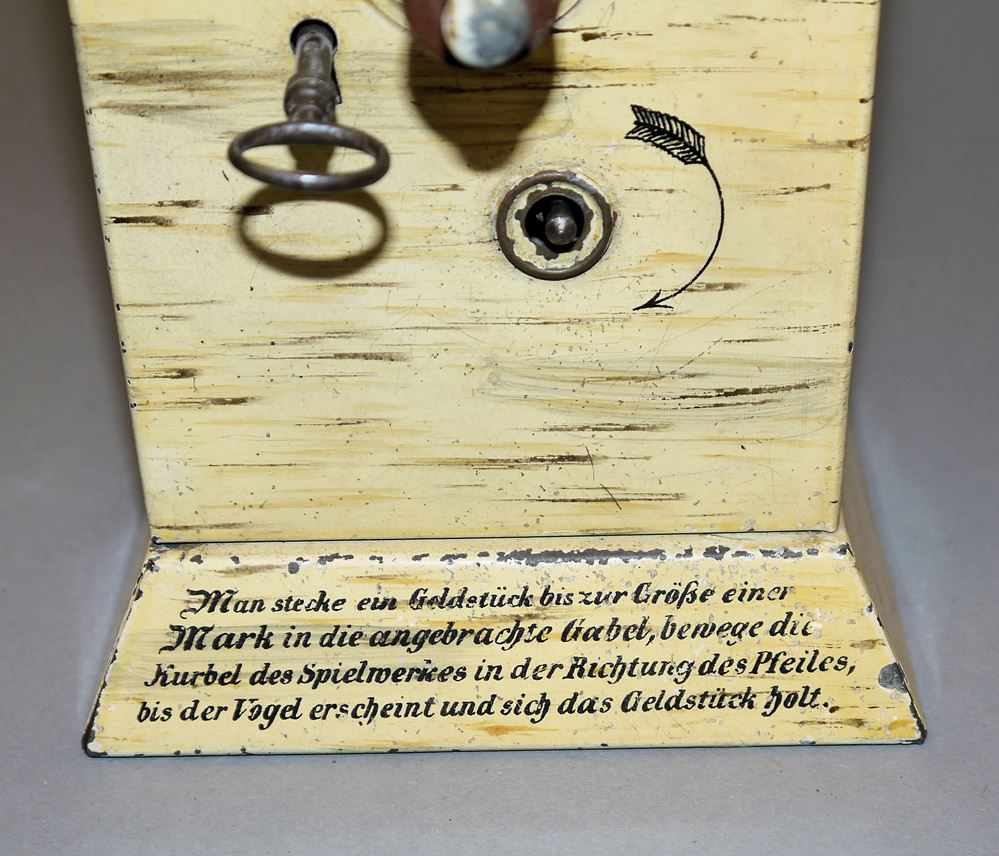 Man stecke ein Geldstück bis zur Größe einer
Mark in die angebrachte Gabel, bewege die
Kurbel des Spielwerkes in der Richtung des Pfeiles,
bis der Vogel erscheint und sich das Geldstück holt.